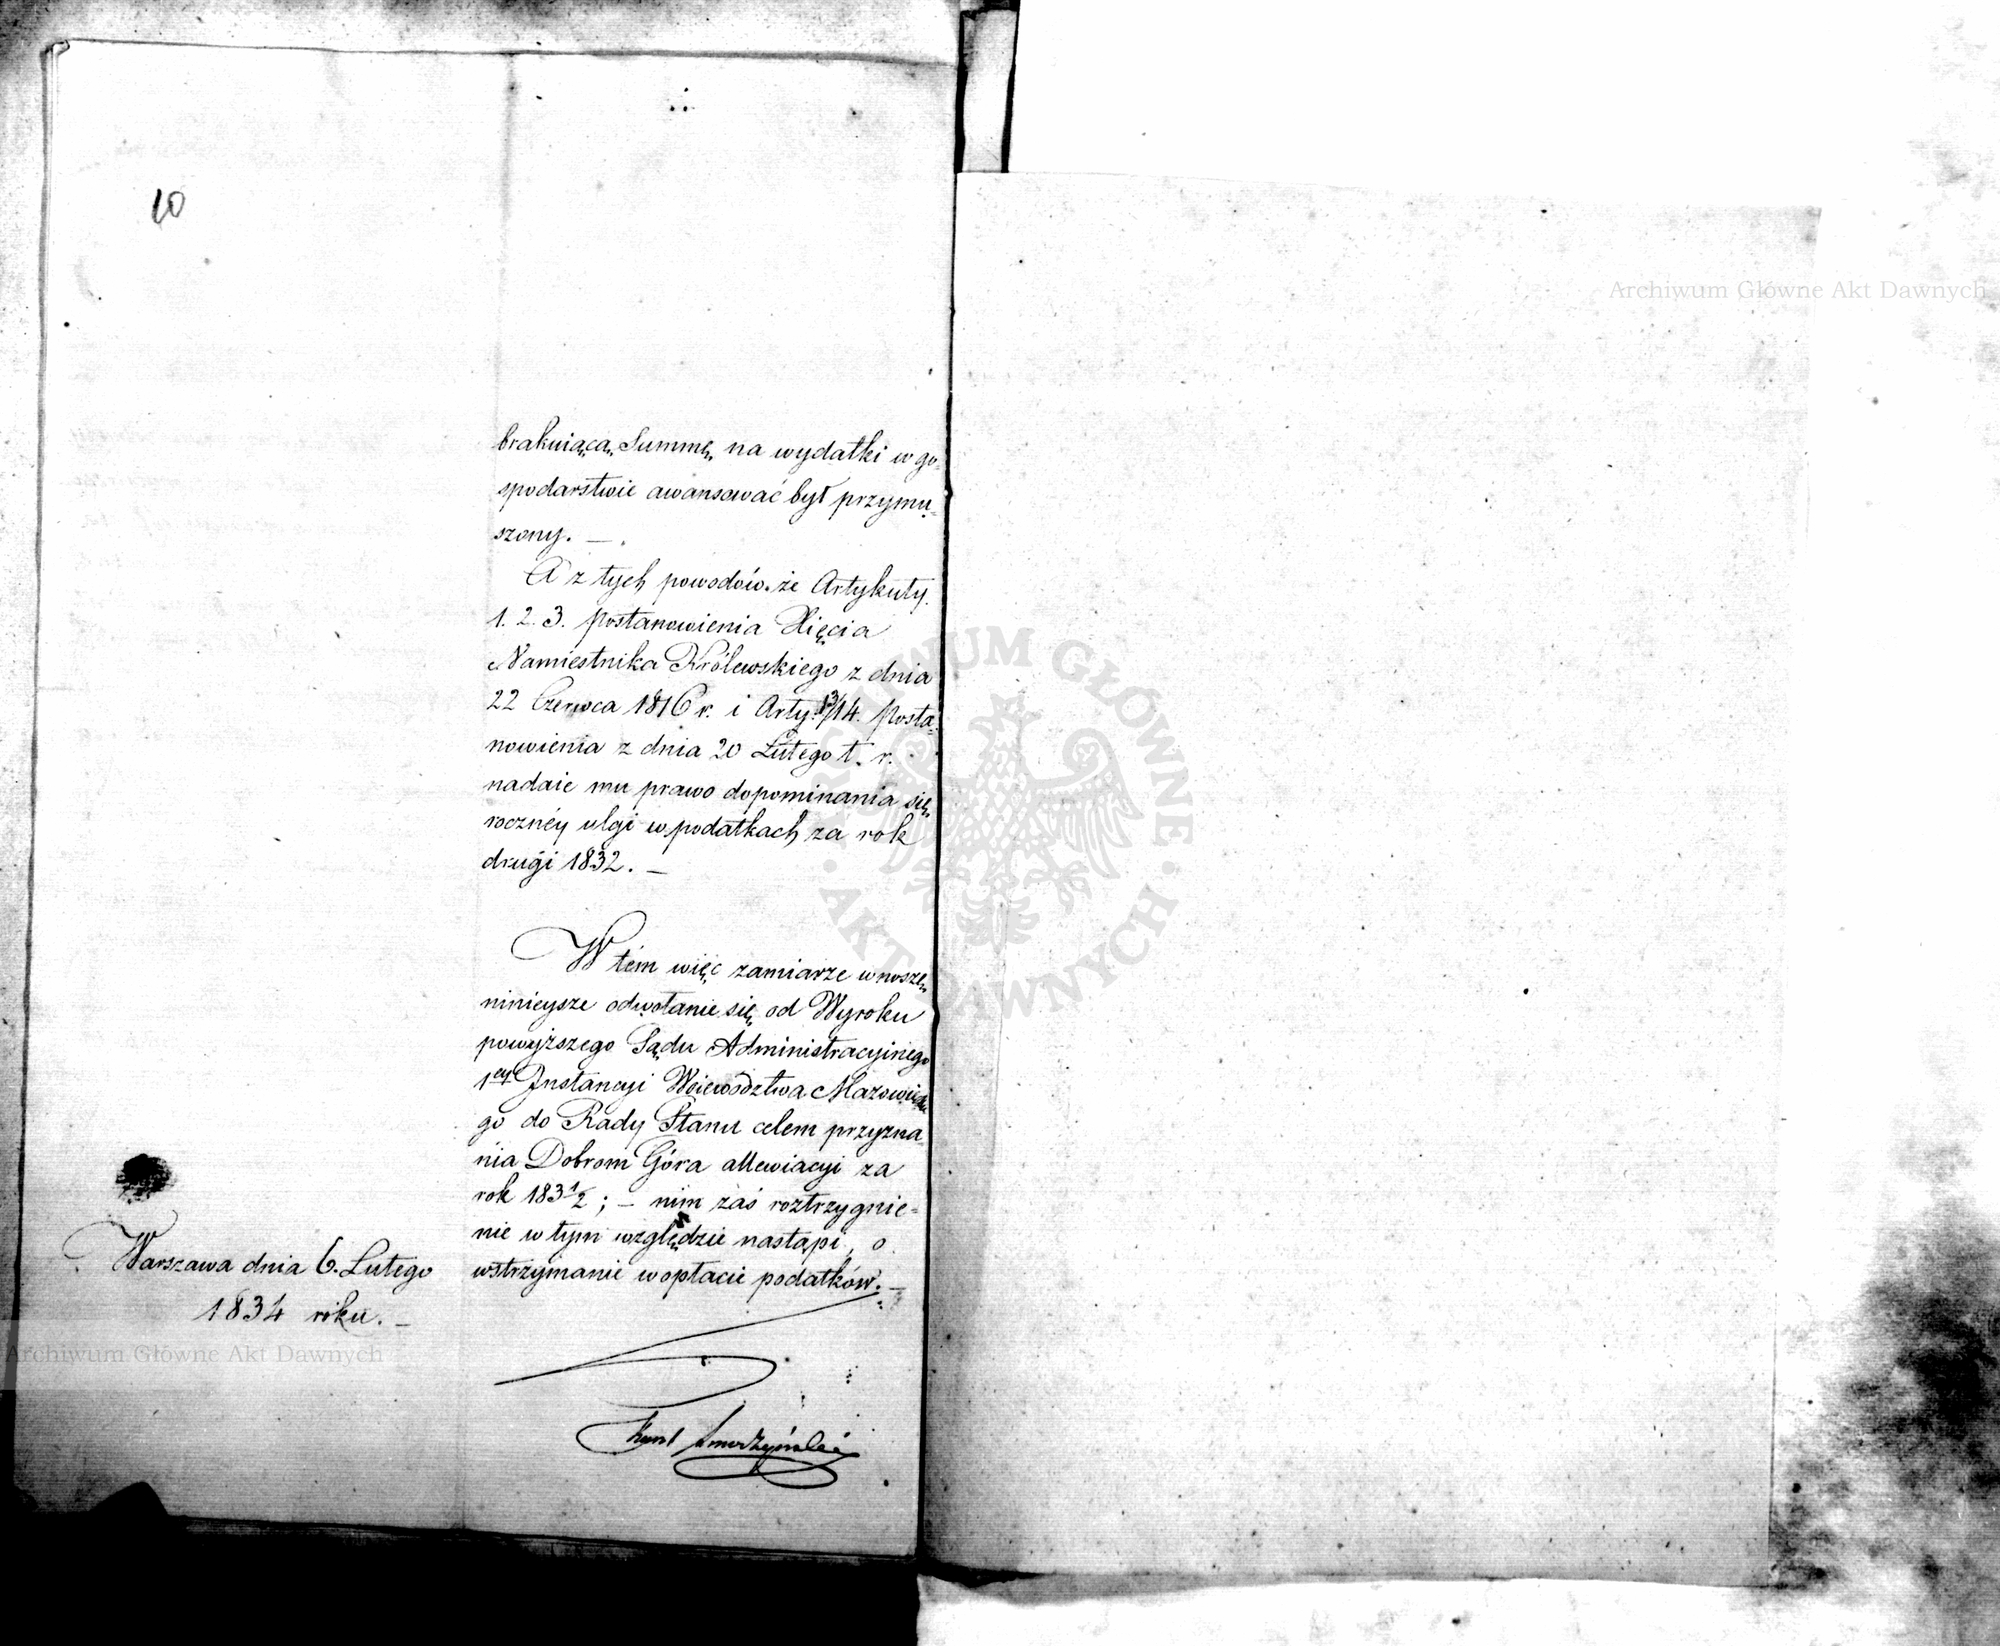 10
brakuiącą Summę na wydatki w go-
spodarstwie awansować był przymu-
szony. —
A z tych powodów że Artykuły
1. 2. 3. postanowienia Xięcia
Namiestnika Królewskiego z dnia
22 Czerwca 1816 r. i Arty: 13/14. posta-
nowienia z dnia 20 Lutego t. r.
nadaie mu prawo dopominania się
rocznéy ulgi w podatkach za rok
drugi 1832. —
W tém więc zamiarze wnoszę
ninieysze odwołanie się od Wyroku
powyższego Sądu Administracyinego
1ey Instancyi Woiewództwa Mazowieckie
go do Rady Stanu celem przyzna
nia Dobrom Góra allewiacyi za
rok 183½; — nim zaś roztrzygnie=
nie w tym względzie nastąpi, o
wstrzymanie w opłacie podatków. —
Warszawa dnia 6. Lutego
1834 roku. —
Archiwum Główne Akt Dawnych
Archiwum Główne Akt Dawnych
ARCHIWUM GŁÓWNE
AKT DAWNYCH